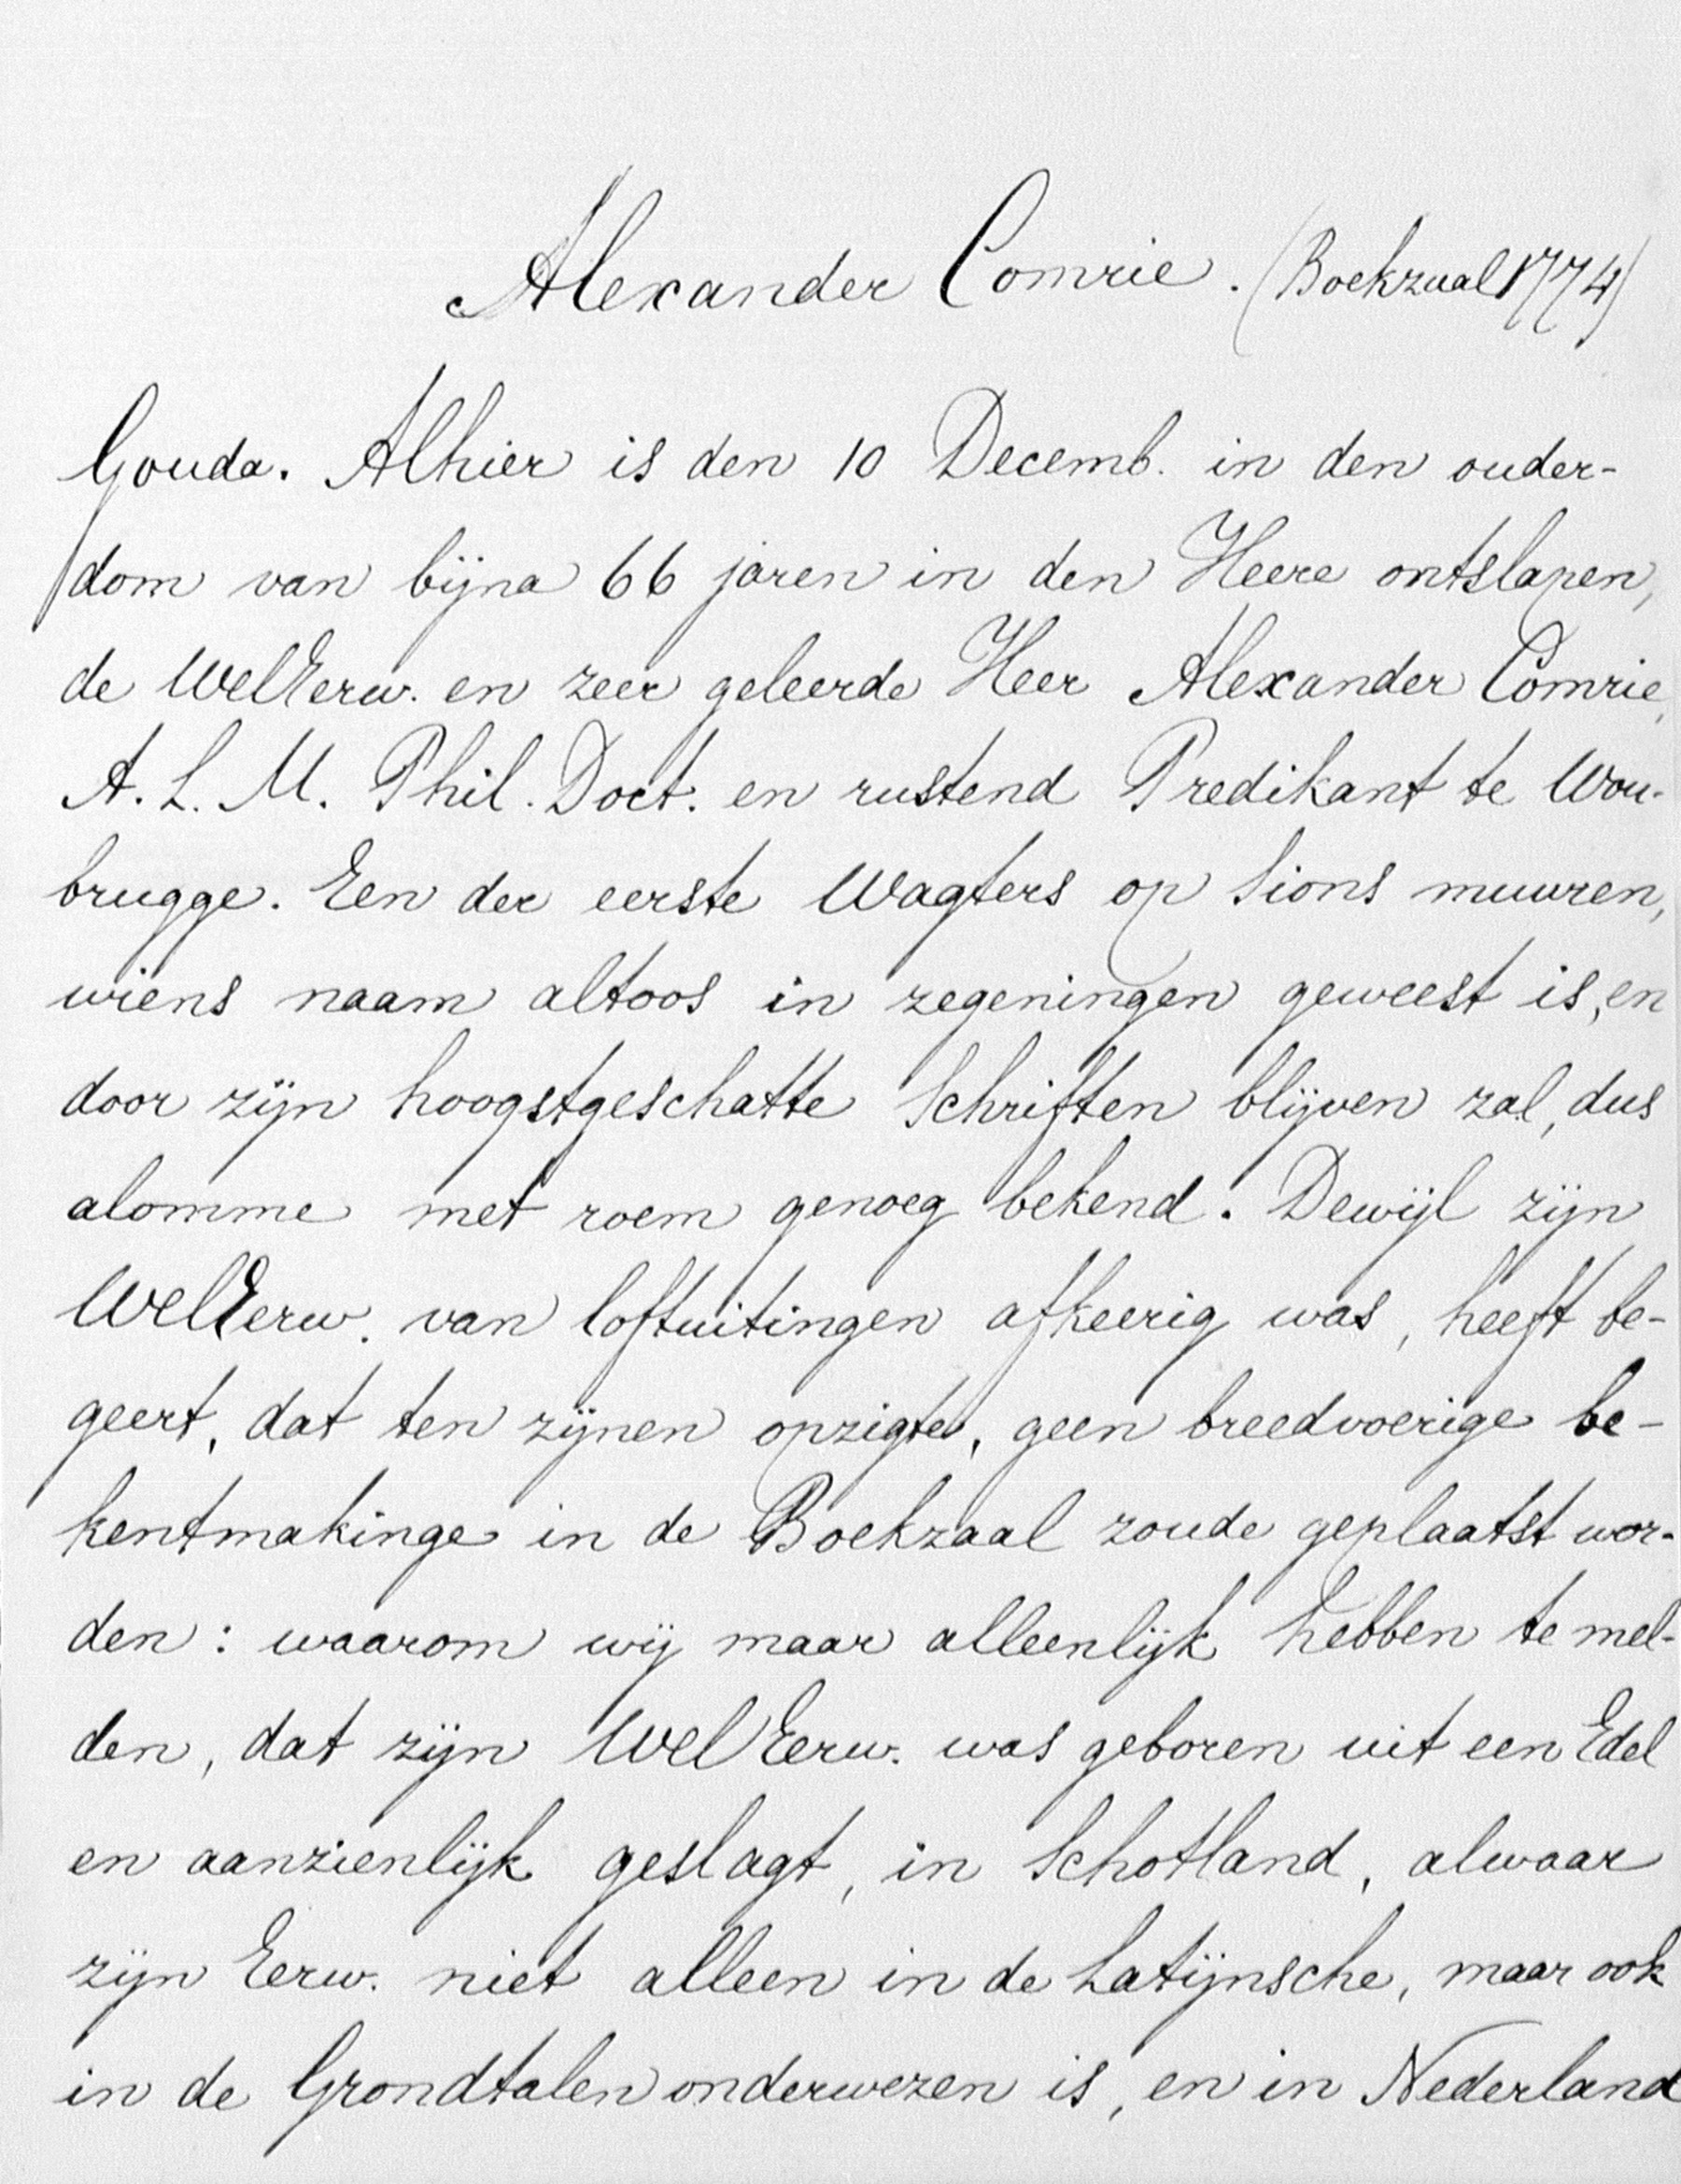 Alexander Comrie. (Boekzaal 1774)
Gouda. Alhier is den 10 Decemb. in den ouder-
dom van bijna 66 jaren in den Heere ontslapen,
de WelEerw. en zeer geleerde Heer Alexander Comrie,
A. L. M. Phil. Doct. en rustend Predikant te Wou-
brugge. Een der eerste Wagters op Sions muuren,
wiens naam altoos in zegeningen geweest is, en
door zijn hoogstgeschatte Schriften blijven zal, dus
alomme met roem genoeg bekend. Dewijl zijn
WelEerw. van loftuitingen afkeerig was, heeft be-
geert, dat ten zijnen opzigte, geen breedvoerige be-
kentmakinge in de Boekzaal zoude geplaatst wor-
den: waarom wij maar alleenlijk hebben te mel-
den, dat zijn WelEerw. was geboren uit een Edel
en aanzienlijk geslagt, in Schotland, alwaar
zijn Eerw. niet alleen in de Latijnsche, maar ook
in de Grondtalen onderwezen is, en in Nederland